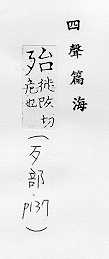 四聲篇海
⿱台歹徒改切
危也
(歹部.p137)